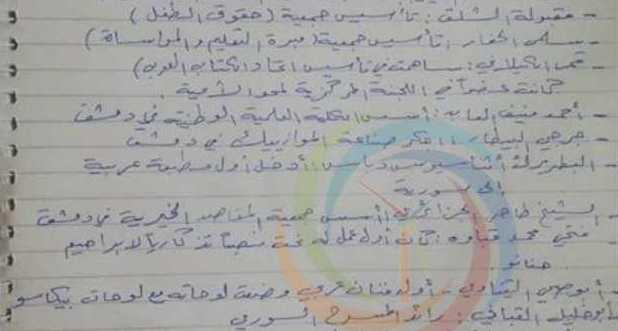 - مقبولة الشلق: تأسيس جمعية (حقوق الطفل)
- سلمى الحفار: تأسيس جمعية (مبرة التعليم والمواساة)
- قمر الكيلاني: ساهمت في تأسيس اتحاد الكتاب العرب)
كانت عضواً في اللجنة المركزية لمحو الأمية.
- أحمد منيف العائدي: أسس الكلية العلمية الوطنية في دمشق
- جرجي البيطار: ابتكر صناعة الموازييك في دمشق
- البطريرك أثناسيوس دباس: أدخل أول مطبعة عربية
إلى سورية
- الشيخ طاهر الجزائري: أسس جمعية المقاصد الخيرية في دمشق
- فتحي محمد قباوة: كان أول عمل له نحت نصباً تذكارياً لابراهيم
هنانو.
- أبو صبحي التيناوي - أول فنان عربي وضعت لوحاته مع لوحات بيكاسو
- أبو خليل القباني: رائد المسرح السوري